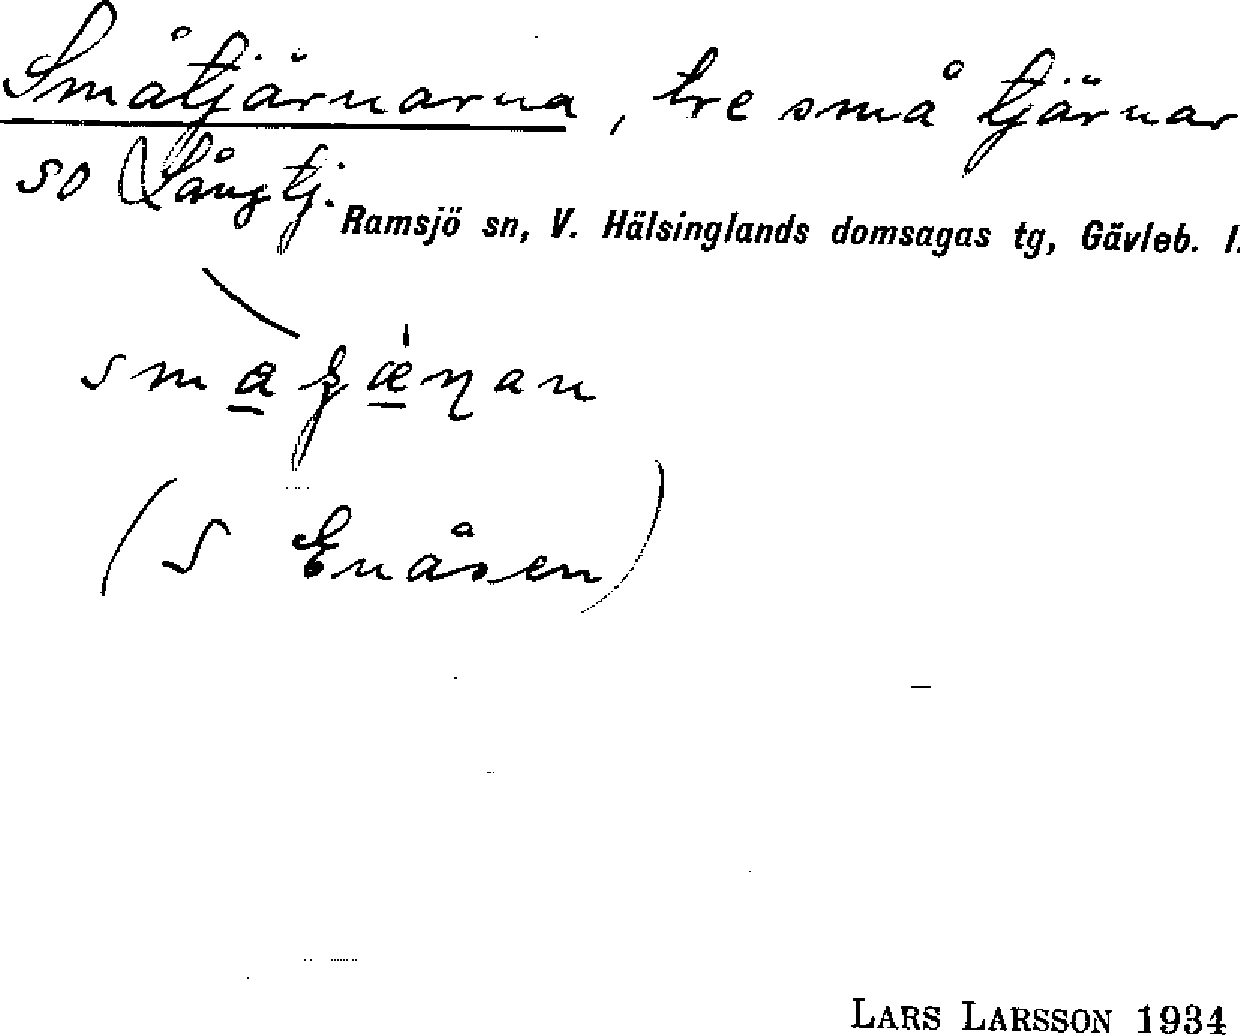 Småtjärnarna, tre små tjärnar
so Långtj.
Ramsjö sn, V. Hälsinglands domsagas tg, Gävleb. l.
(S Enåsen)
LARS LARSSON 1934